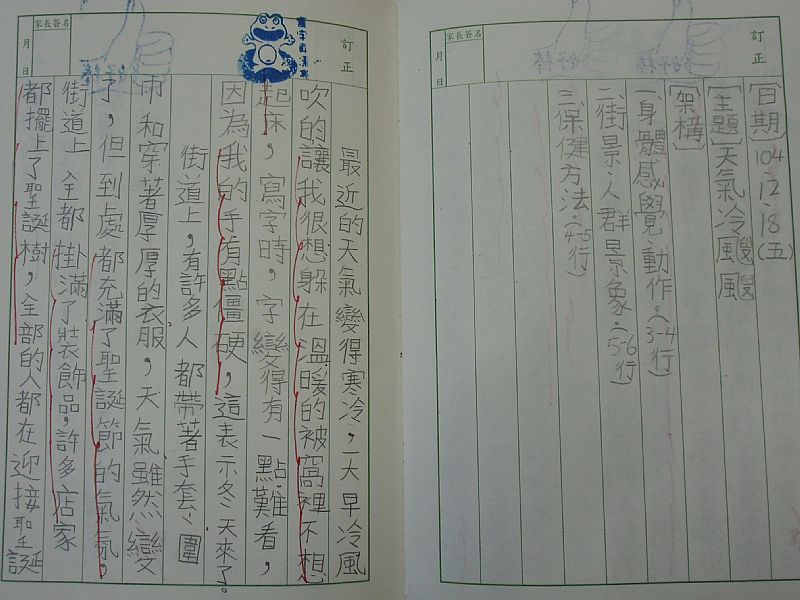 訂正
家長簽名
月 日
[日期]104.12.18(五)
[主題]天氣冷颼颼
[架構]
一、身體感覺、動作。(3-4行)
二、街景、人群景象。(5-6行)
三、保健方法。(4-5行)
訂正
家長簽名
月 日
最近的天氣變得寒冷,一大早冷風
吹的讓我很想躲在溫暖的被窩裡不想
起床,寫字時,字變得有一點難看,
因為我的手有點僵硬,這表示冬天來了。
街道上,有許多人都帶著手套、圍
巾和穿著厚厚的衣服,天氣雖然變
冷了,但到處都充滿了聖誕節的氣氛,
街道上全都掛滿了裝飾品,許多店家
都擺上了聖誕樹,全部的人都在迎接聖誕